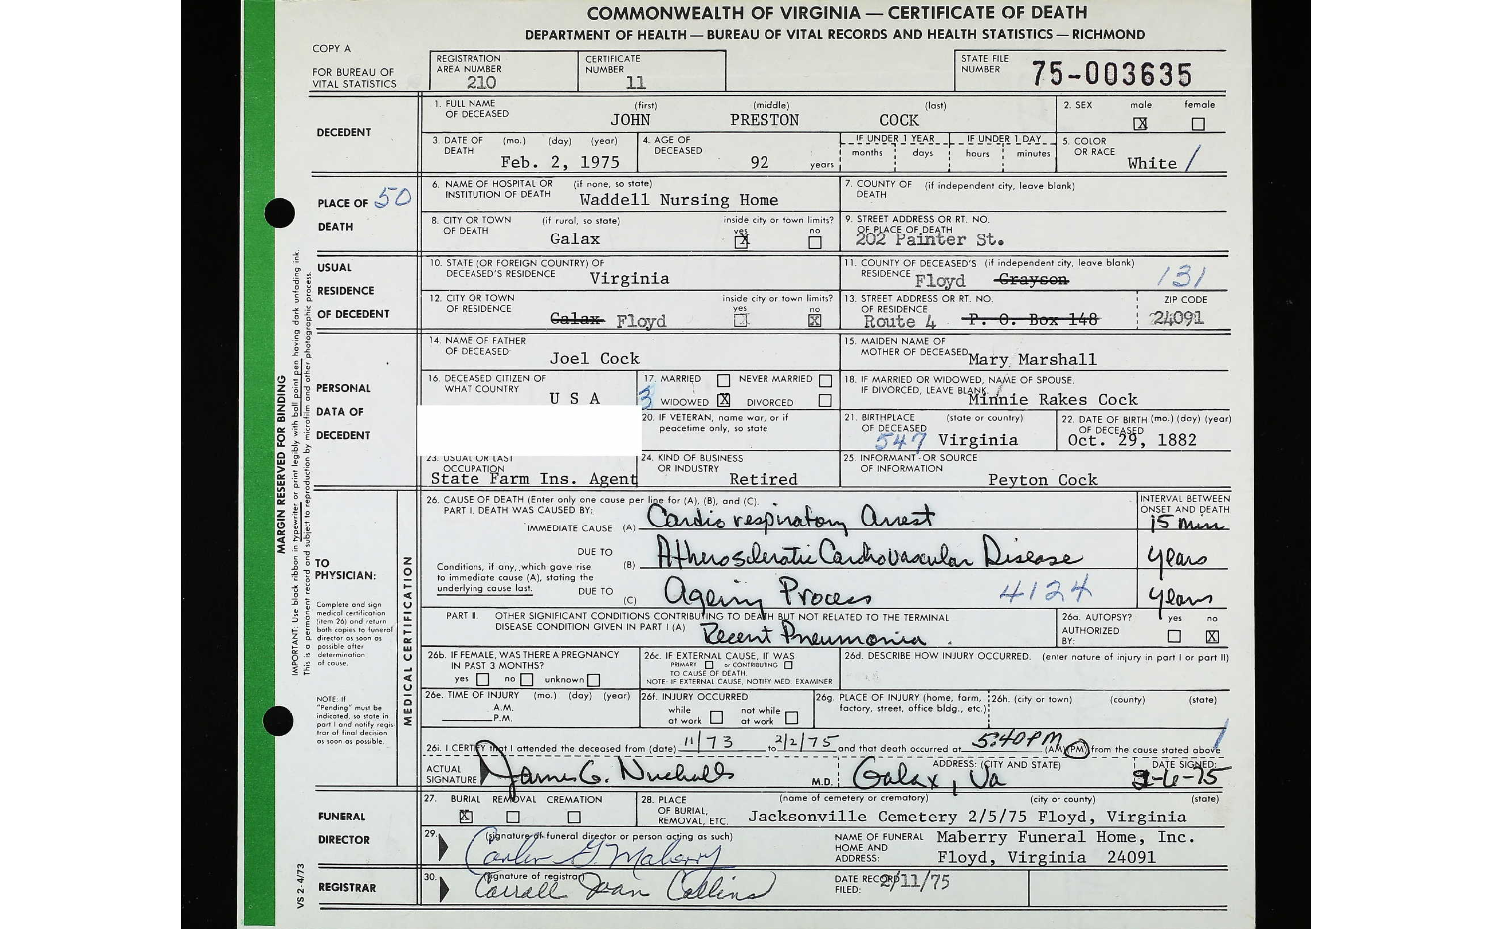 COMMONWEALTH OF VIRGINIA — CERTIFICATE OF DEATH
DEPARTMENT OF HEALTH — BUREAU OF VITAL RECORDS AND HEALTH STATISTICS — RICHMOND
COPY A
FOR BUREAU OF
VITAL STATISTICS
REGISTRATION
AREA NUMBER
210
CERTIFICATE
NUMBER
11
STATE FILE
NUMBER
75-003635
DECEDENT
1. FULL NAME
OF DECEASED
(first) (middle) (last)
JOHN PRESTON COCK
2. SEX male female
X
3. DATE OF DEATH (mo.) (day) (year)
Feb. 2, 1975
4. AGE OF
DECEASED
92 years
IF UNDER 1 YEAR IF UNDER 1 DAY
months days hours minutes
5. COLOR
OR RACE
White /
PLACE OF 50
DEATH
6. NAME OF HOSPITAL OR (if none, so state)
INSTITUTION OF DEATH
Waddell Nursing Home
7. COUNTY OF (if independent city, leave blank)
DEATH
8. CITY OR TOWN (if rural, so state)
OF DEATH
Galax
inside city or town limits?
yes no
X
9. STREET ADDRESS OR RT. NO.
OF PLACE OF DEATH
202 Painter St.
USUAL
RESIDENCE
OF DECEDENT
10. STATE (OR FOREIGN COUNTRY) OF
DECEASED'S RESIDENCE
Virginia
11. COUNTY OF DECEASED'S (if independent city, leave blank)
RESIDENCE
Floyd Grayson
131
12. CITY OR TOWN
OF RESIDENCE
Galax Floyd
inside city or town limits?
yes no
X
13. STREET ADDRESS OR RT. NO.
OF RESIDENCE
Route 4 P. O. Box 148
ZIP CODE
24091
PERSONAL
DATA OF
DECEDENT
14. NAME OF FATHER
OF DECEASED
Joel Cock
15. MAIDEN NAME OF
MOTHER OF DECEASED
Mary Marshall
16. DECEASED CITIZEN OF
WHAT COUNTRY
U S A
17. MARRIED NEVER MARRIED
3 WIDOWED X DIVORCED
18. IF MARRIED OR WIDOWED, NAME OF SPOUSE.
IF DIVORCED, LEAVE BLANK
Minnie Rakes Cock
20. IF VETERAN, name war, or if
peacetime only, so state
21. BIRTHPLACE (state or country)
OF DECEASED
547 Virginia
22. DATE OF BIRTH (mo.) (day) (year)
OF DECEASED
Oct. 29, 1882
23. USUAL OR LAST
OCCUPATION
State Farm Ins. Agent
24. KIND OF BUSINESS
OR INDUSTRY
Retired
25. INFORMANT OR SOURCE
OF INFORMATION
Peyton Cock
MARGIN RESERVED FOR BINDING
IMPORTANT: Use black ribbon in typewriter or print legibly with ball point pen having dark unfading ink.
This is a permanent record and subject to reproduction by microfilm and other photographic process.
TO
PHYSICIAN:
Complete and sign
medical certification
(item 26) and return
both copies to funeral
director as soon as
possible after
determination
of cause.
NOTE: If
"Pending" must be
indicated, so state in
part I and notify regis
trar of final decision
as soon as possible.
MEDICAL CERTIFICATION
26. CAUSE OF DEATH (Enter only one cause per line for (A), (B), and (C).
PART I. DEATH WAS CAUSED BY:
INTERVAL BETWEEN
ONSET AND DEATH
IMMEDIATE CAUSE (A) Cardiorespiratory Arrest 15 min
DUE TO
(B) Atherosclerotic Cardiovascular Disease years
Conditions, if any, which gave rise
to immediate cause (A), stating the
underlying cause last.
DUE TO
(C) Ageing Process 4124 years
PART II. OTHER SIGNIFICANT CONDITIONS CONTRIBUTING TO DEATH BUT NOT RELATED TO THE TERMINAL
DISEASE CONDITION GIVEN IN PART I (A)
Recent Pneumonia
26a. AUTOPSY? yes no
AUTHORIZED
BY: X
26b. IF FEMALE, WAS THERE A PREGNANCY
IN PAST 3 MONTHS?
yes no unknown
26c. IF EXTERNAL CAUSE, IT WAS
PRIMARY or CONTRIBUTING
TO CAUSE OF DEATH.
NOTE: IF EXTERNAL CAUSE, NOTIFY MED. EXAMINER
26d. DESCRIBE HOW INJURY OCCURRED. (enter nature of injury in part I or part II)
26e. TIME OF INJURY (mo.) (day) (year)
A.M.
P.M.
26f. INJURY OCCURRED
while at work not while at work
26g. PLACE OF INJURY (home, farm,
factory, street, office bldg., etc.)
26h. (city or town) (county) (state)
26i. I CERTIFY that I attended the deceased from (date) 11/73 to 2/2/75 and that death occurred at 5:40 PM (AM) (PM) from the cause stated above
ACTUAL
SIGNATURE
James G. Nuckolls M.D.
ADDRESS: (CITY AND STATE)
Galax, Va
DATE SIGNED:
2-6-75
FUNERAL
DIRECTOR
27. BURIAL REMOVAL CREMATION
X
28. PLACE
OF BURIAL,
REMOVAL, ETC.
(name of cemetery or crematory) (city or county) (state)
Jacksonville Cemetery 2/5/75 Floyd, Virginia
29. (signature of funeral director or person acting as such)
Maberry
NAME OF FUNERAL
HOME AND
ADDRESS:
Maberry Funeral Home, Inc.
Floyd, Virginia 24091
REGISTRAR
30. (signature of registrar)
Carroll Jean Collins
DATE RECORD
FILED:
2/11/75
VS 2-4/73